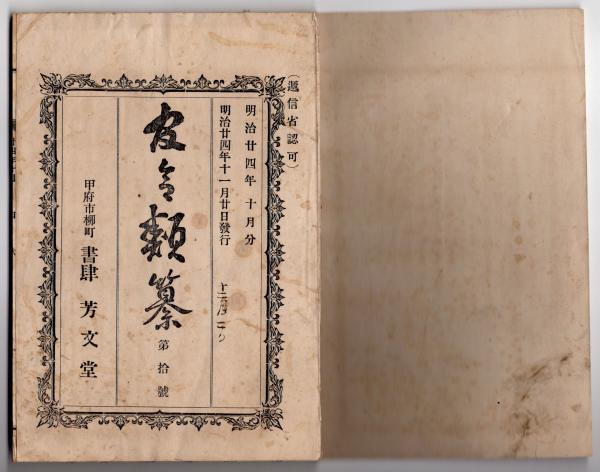 (遞信省認可)
明治廿四年十月分
明治廿四年十一月廿日發行
官令類纂
第拾號
甲府市柳町 書肆 芳文堂